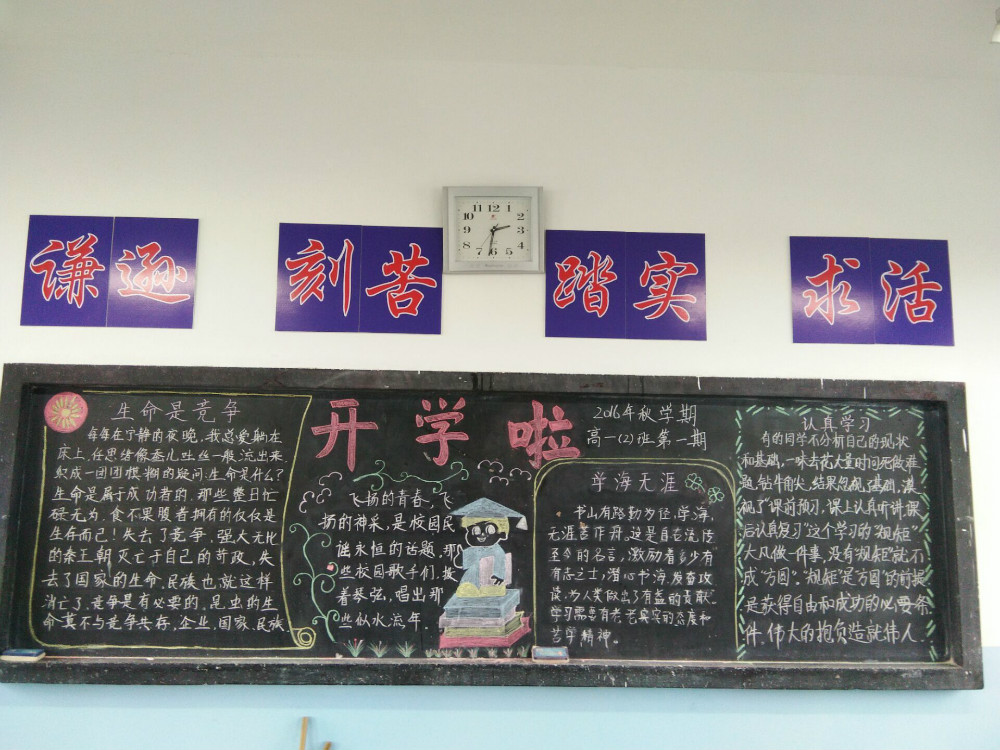 谦逊
刻苦
踏实
求活
11 12 1
10 2
9 3
8 4
7 6 5
生命是竞争
每每在宁静的夜晚,我总爱躺在
床上,任思绪像蚕儿吐丝一般流出来,
织成一团团模糊的疑问:生命是什么?
生命是属于成功者的,那些整日忙
碌无为,食不果腹者拥有的仅仅是
生存而已!失去了竞争,强大无比
的秦王朝灭亡于自己的苛政,失
去了国家的生命,民族也就这样
消亡了,竞争是有必要的,昆虫的生
命莫不与竞争共存,企业,国家,民族.
开学啦
2016年秋学期
高一(2)班第一期
飞扬的青春,飞
扬的神采,是校园民
谣永恒的话题,那
些校园歌手们,拨
着琴弦,唱出那
些似水流年.
学海无涯
书山有路勤为径,学海
无涯苦作舟。这是自古流传
至今的名言,激励着多少有
有志之士,潜心书海,发奋攻
读,为人类做出了有益的贡献"
学习需要有老老实实的态度和
苦学精神。
认真学习
有的同学不分析自己的现状
和基础,一味去花大量时间死做难
题,钻牛角尖,结果忽视基础,漠
视了"课前预习,课上认真听讲,课
后认真复习"这个学习的"规矩"
大凡做一件事,没有"规矩"就不
成"方圆"."规矩"是"方圆"的前提
是获得自由和成功的必要条
件,伟大的抱负造就伟人.